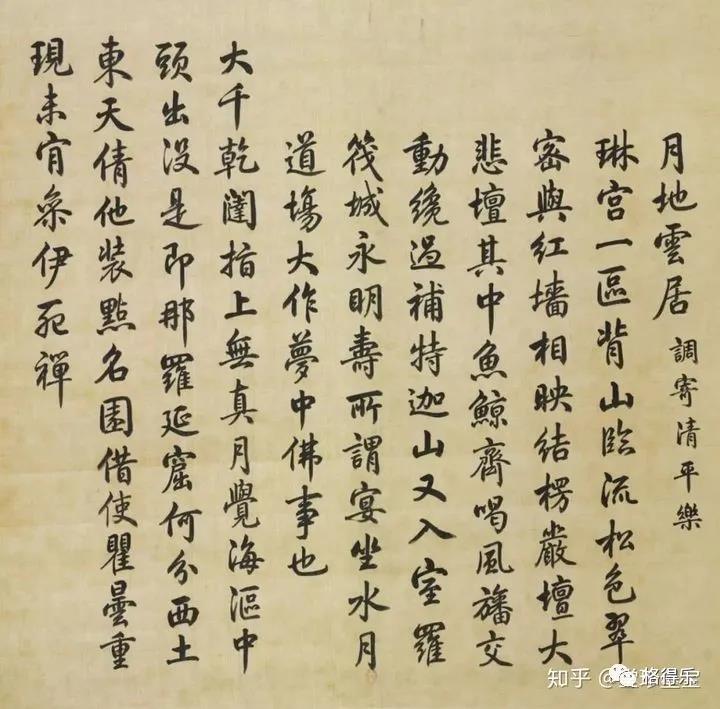 月地雲居 調寄清平樂
琳宫一區背山臨流松色翠
密與紅墻相映结楞嚴壇大
悲壇其中魚鯨齊喝風旛交
動纔過補特迦山又入室羅
筏城永明壽所謂宴坐水月
道場大作夢中佛事也
大千乾闥指上無真月覺海漚中
頭出没是即那羅延窟何分西土
東天倩他装點名園借使瞿曇重
現未肯叅伊死禪
知乎
格得乐